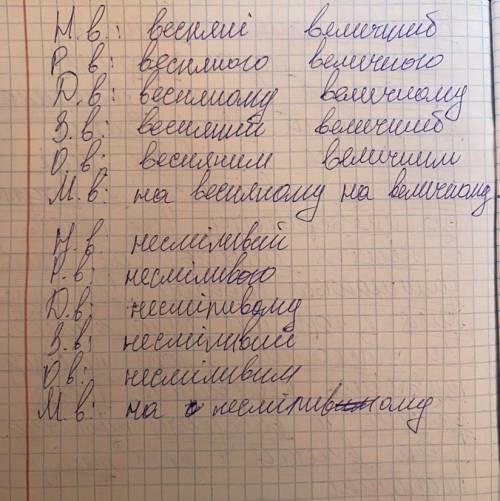 Н.в.: весняні величний
Р.в: весняного величного
Д.в: весняному величному
З.в: весняний величний
О.в: весняним величним
М.в: на весняному на величному.
Н.в: несміливий
Р.в: несміливого
Д.в: несміливому
З.в: несміливий
О.в: несміливим
М.в: на несміливому